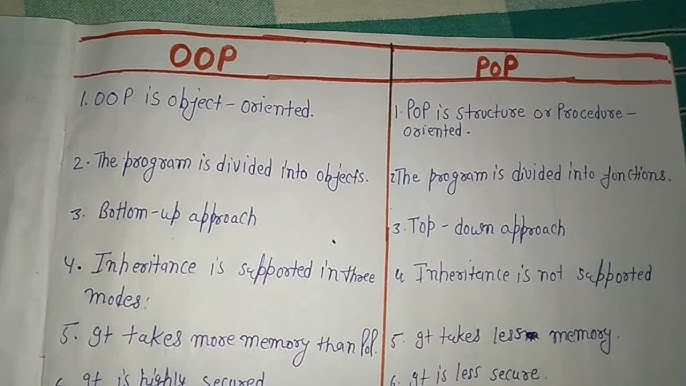 OOP
1. OOP is object-oriented.
2. The program is divided into objects.
3. Bottom-up approach
4. Inheritance is supported in three
modes:
5. It takes more memory than PoP.
6. It is highly secured
PoP
1. POP is structure or Procedure-
oriented.
2. The program is divided into fonctions.
3. Top-down approach
4. Inheritance is not supported
5. It takes less memory.
6. It is less secure.